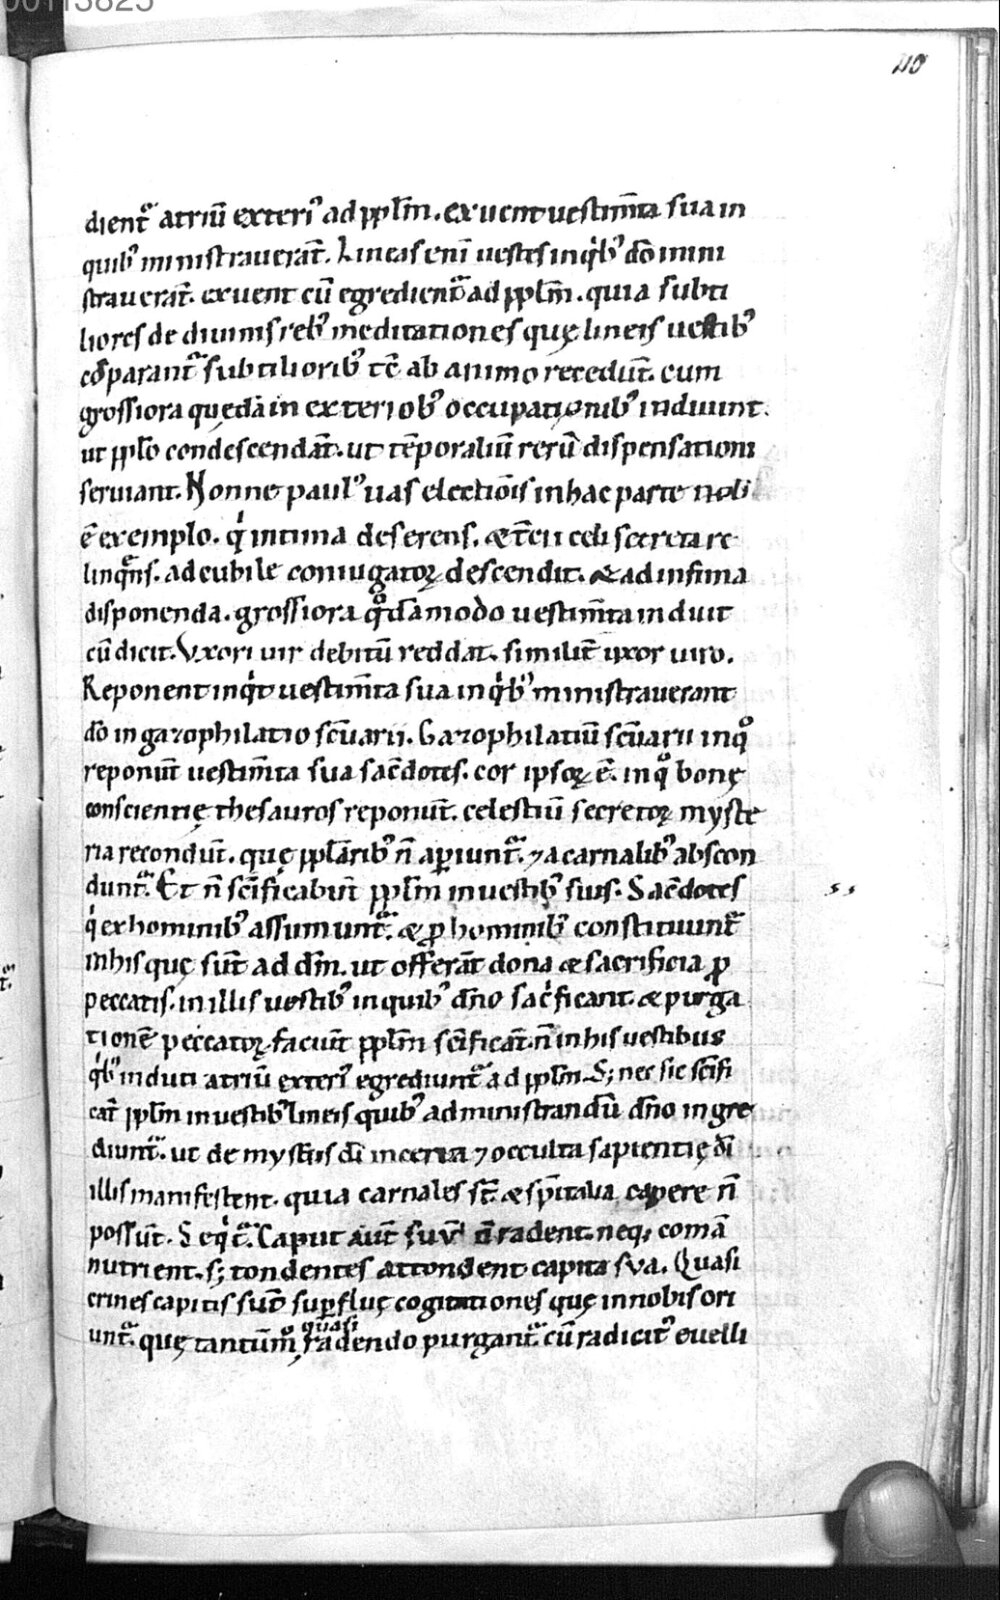 00113825
110
dientᷓ atriū exteri᷒ ad pplm̄. exuent uestim̄ta sua in
quib᷒ ministrauerāt. Lineas eni uestes in qⁱb᷒ dō mini
strauerāt. exuent cū egredientᷓ ad pplm̄. quia subti
liores de diuinis reb᷒ meditationes quę lineis uestib᷒
cōparantᷓ subtiliorib᷒ tc̄ ab animo recedūt. cum
grossiora quędā in exteriob᷒ occupationib᷒ induunt.
ut pplo condescendāt. ut tēporaliū rerū dispensationi
seruiant. Nonne paul᷒ uas electiōis in hac parte nob
ē exemplo. qⁱ intima deserens. & tc̄ii celi secreta re
linqᵃns. ad cubile coniugatoꝝ descendit. & ad infima
disponenda. grossiora qᵒdā modo uestim̄ta induit
cū dicit. Vxori uir debitū reddat. similit̄ uxor uiro.
Reponent inqⁱt uestim̄ta sua in qⁱb᷒ ministrauerant
dō in gazophilatio sc̄uarii. Gazophilatiū sc̄uarii in qᵒ
reponūt uestim̄ta sua sac̄dotes. cor ipsoꝝ ē. in qᵒ bonę
conscientię thesauros reponūt. celestiū secretoꝝ myste
ria recondūt. quę pplārib᷒ n̄ aꝑiuntᷓ. ⁊ a carnalib᷒ abscon
duntᷓ. Et n̄ sc̄ificabūt pplm̄ in uestib᷒ suis. Sac̄dotes
qⁱ ex hominib᷒ assumuntᷓ. & ꝓ hominib᷒ constituuntᷓ
in his quę sūt ad dm̄. ut offerāt dona & sacrificia ꝓ
peccatis. in illis uestib᷒ in quib᷒ dn̄o sacⁱficant. & purga
tionē peccatoꝝ faciūt pplm̄ sc̄ificāt. n̄ in his uestibus
qⁱb᷒ induti atriū exteri᷒ egrediuntᷓ ad pplm̄. S; nec sic sc̄ifi
cāt pplm̄ in uestib᷒ lineis quib᷒ ad ministrandū dn̄o ingre
diuntᷓ. ut de mysteriis dī incerta ⁊ occulta sapientię dī
illis manifestent. quia carnales st̄. & sp̄italia capere n̄
possūt. Seqⁱtᷓ. Caput aut̄ suū n̄ radent. neq; comā
nutrient. s; tondentes attondent capita sva. Quasi
crines capitis sūt suꝑfluę cogitationes quę in nobis ori
untᷓ. quę tantūmᵒ quasi radendo purgantᷓ. cū radicit᷒ euelli